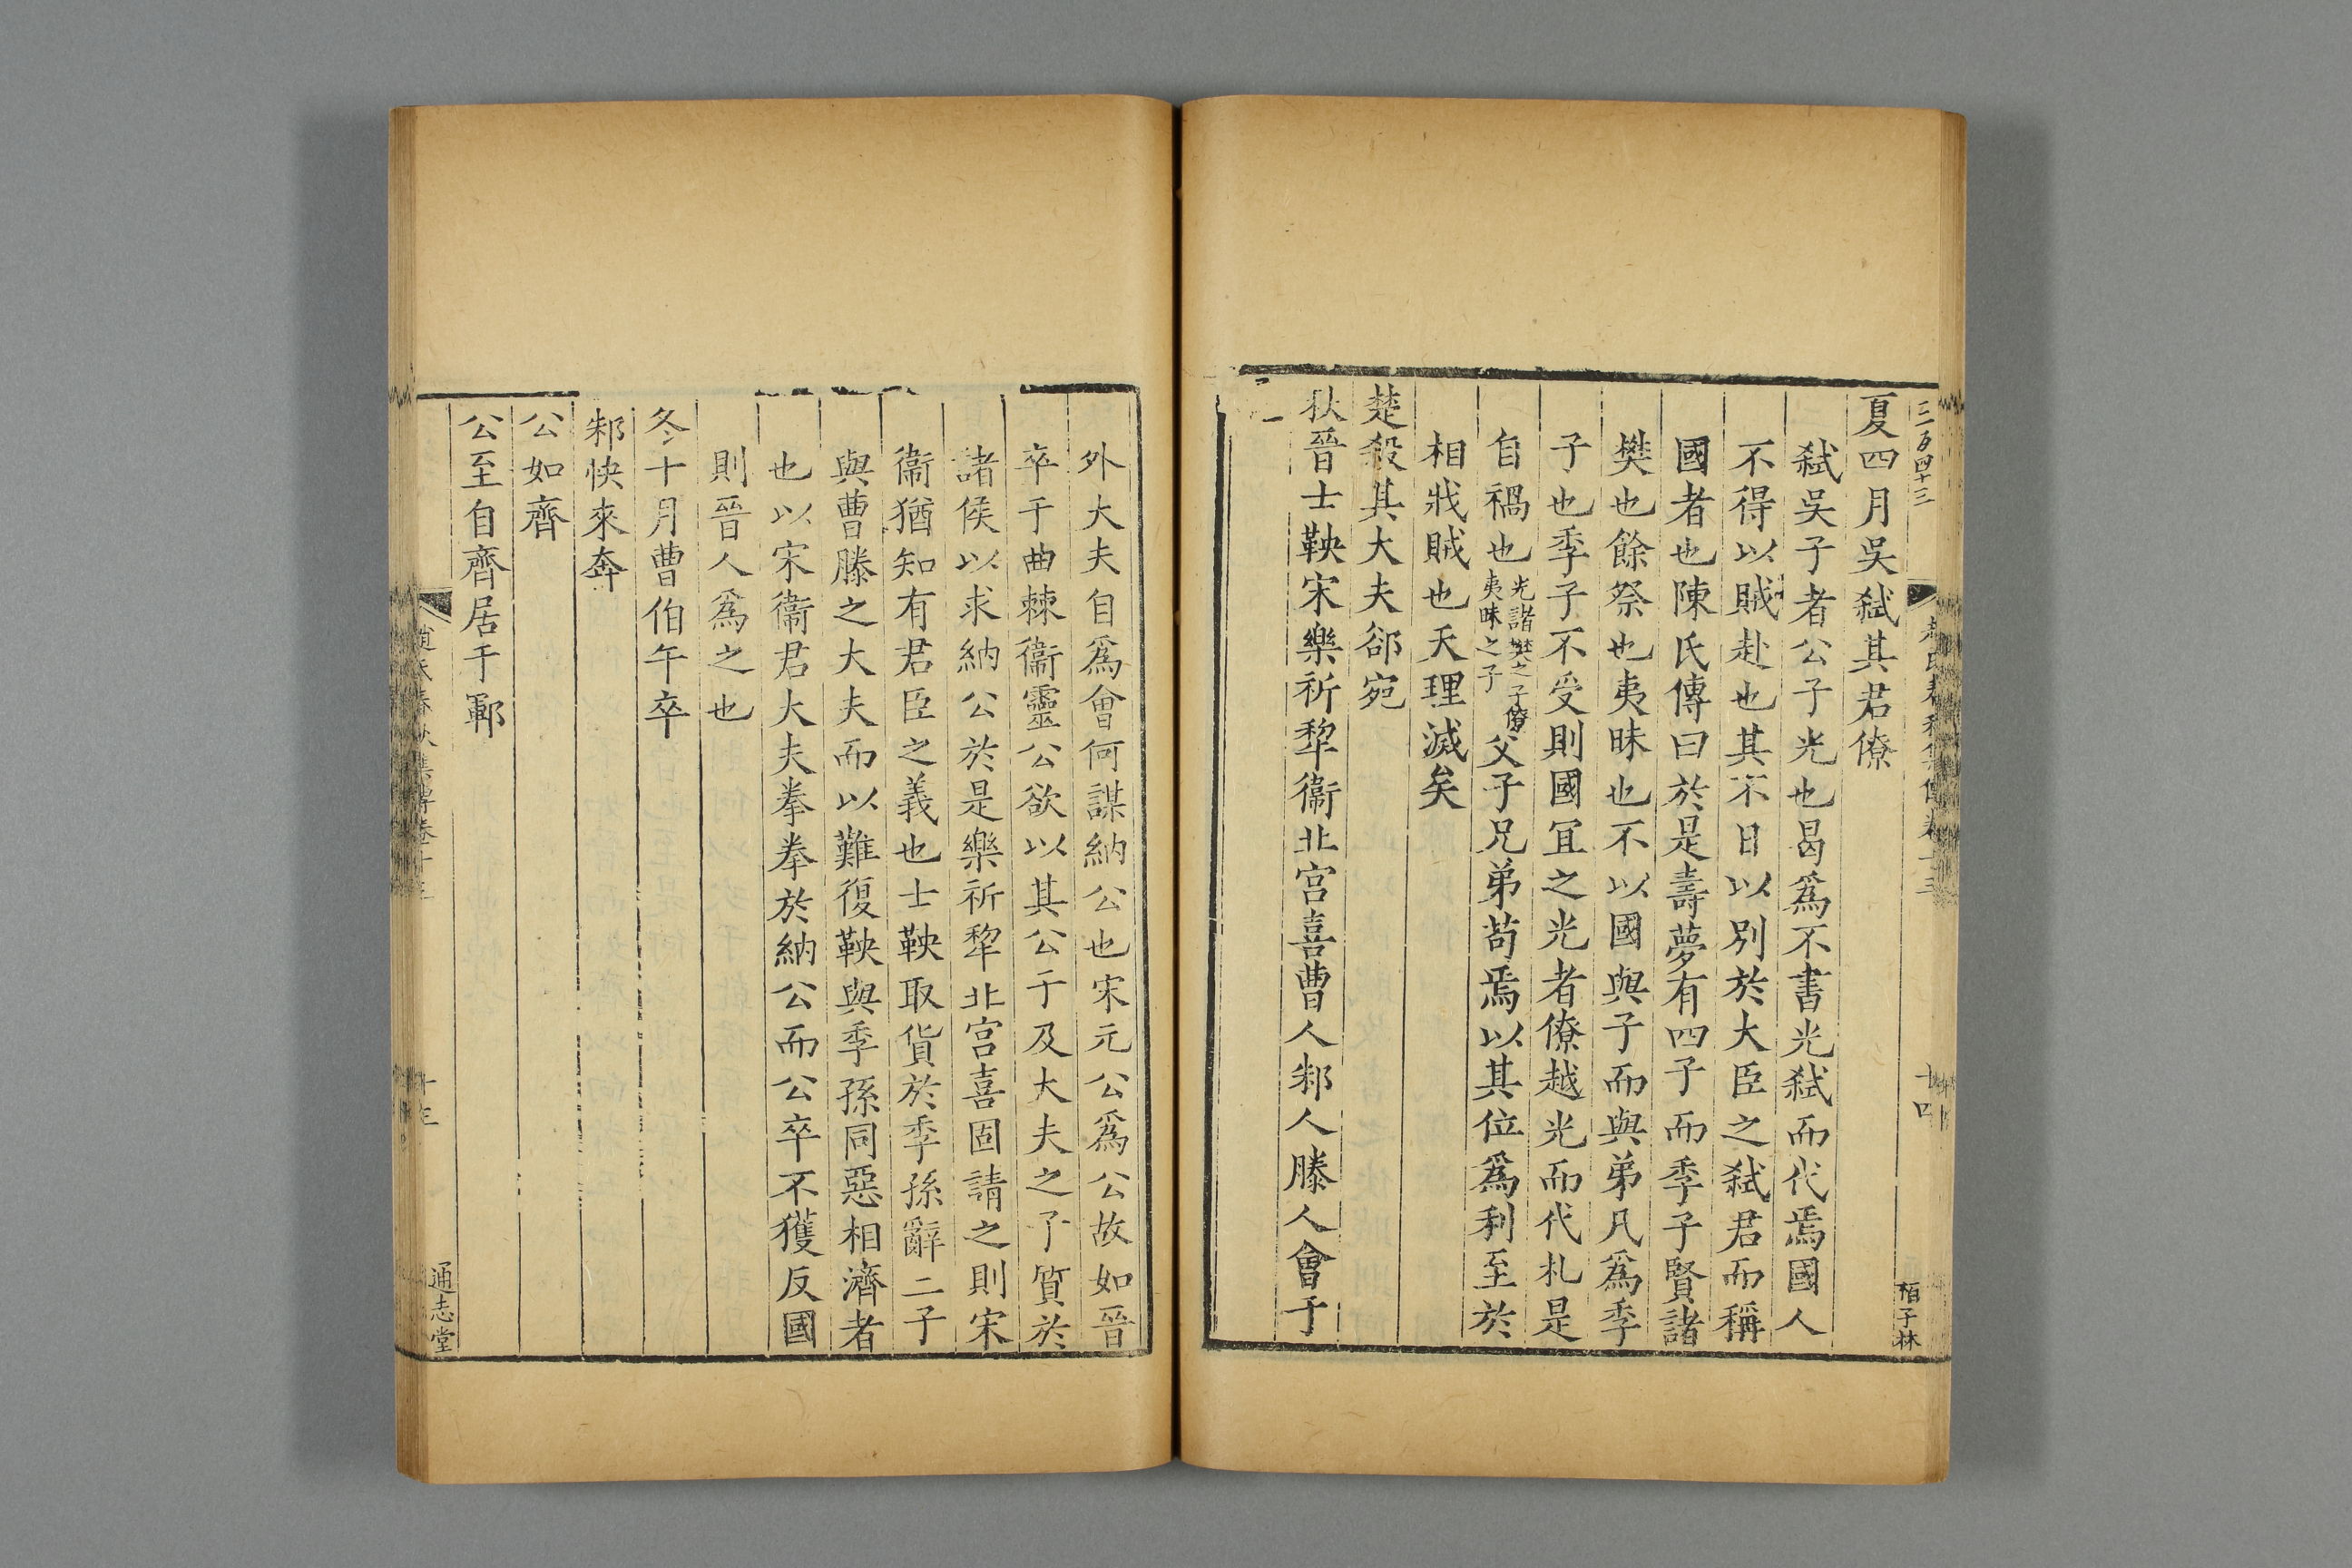 三百四十三
栢子林
夏四月吳弑其君僚
弑吳子者公子光也曷爲不書光弑而代焉國人
不得以賊赴也其不日以别於大臣之弑君而稱
國者也陳氏傳曰於是壽夢有四子而季子賢諸
樊也餘祭也夷昧也不以國與子而與弟凡爲季
子也季子不受則國冝之光者僚越光而代札是
自禍也光諸樊之子僚夷昧之子父子兄弟茍焉以其位爲利至於
相戕賊也天理滅矣
楚殺其大夫郤宛
秋晉士鞅宋樂祈犂衞北宫喜曹人邾人滕人會于
外大夫自爲會何謀納公也宋元公爲公故如晉
卒于曲棘衞靈公欲以其公子及大夫之子質於
諸侯以求納公於是樂祈犂北宫喜固請之則宋
衞猶知有君臣之義也士鞅取貨於季孫辭二子
與曹滕之大夫而以難復鞅與季孫同惡相濟者
也以宋衞君大夫拳拳於納公而公卒不獲反國
則晉人爲之也
冬十月曹伯午卒
邾快來奔
公如齊
公至自齊居于鄆
趙氏春秋集傳卷十三
通志堂